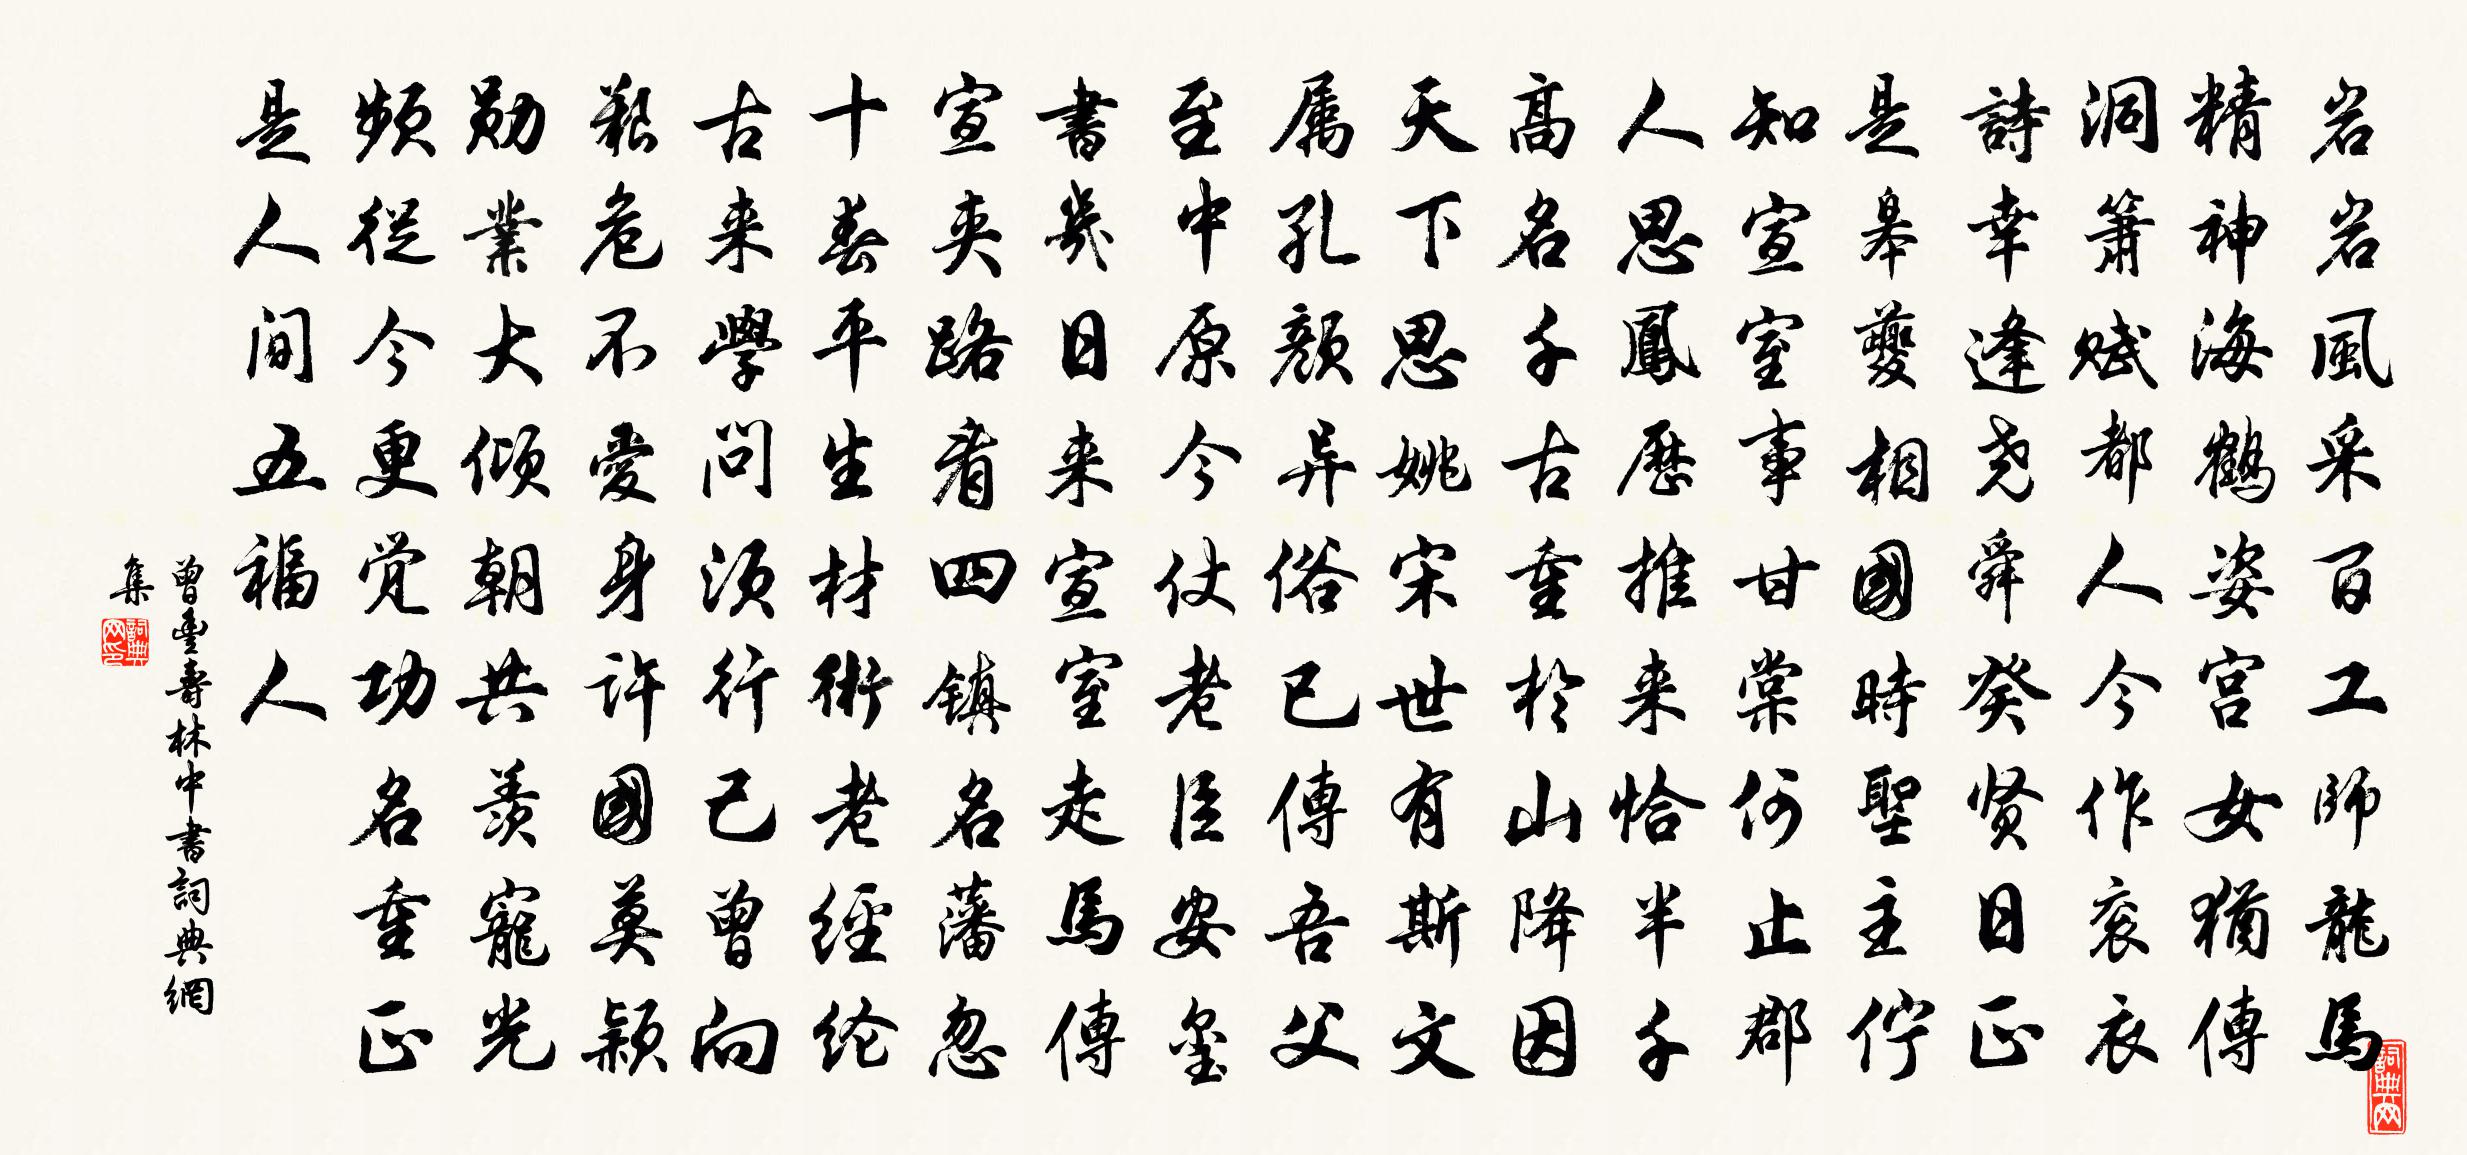 岩岩風采百工師龍馬
精神海鶴姿宫女猶傳
洞簫賦都人今作衮衣
詩幸逢尧舜癸贤日正
是皋夔相國時聖主佇
知宣室事甘棠何止郡
人思鳳歷推来恰半千
高名千古重於山降因
天下思姚宋世有斯文
属孔顔异俗已傳吾父
至中原今仗老臣安玺
書幾日来宣室走馬傳
宣夹路看四镇名藩忽
十春平生材術老經纶
古来學問須行己曾向
艱危不愛身許國莫颖
勛業大倾朝共羨寵光
频從今更觉功名重正
是人间五福人
曾豊壽林中書詞典網
集
詞典网印
詞典网